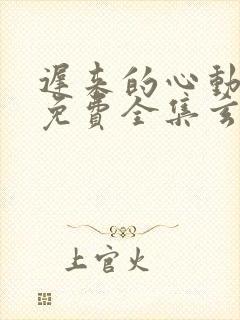 遲来的心動
免費全集玄
上官火